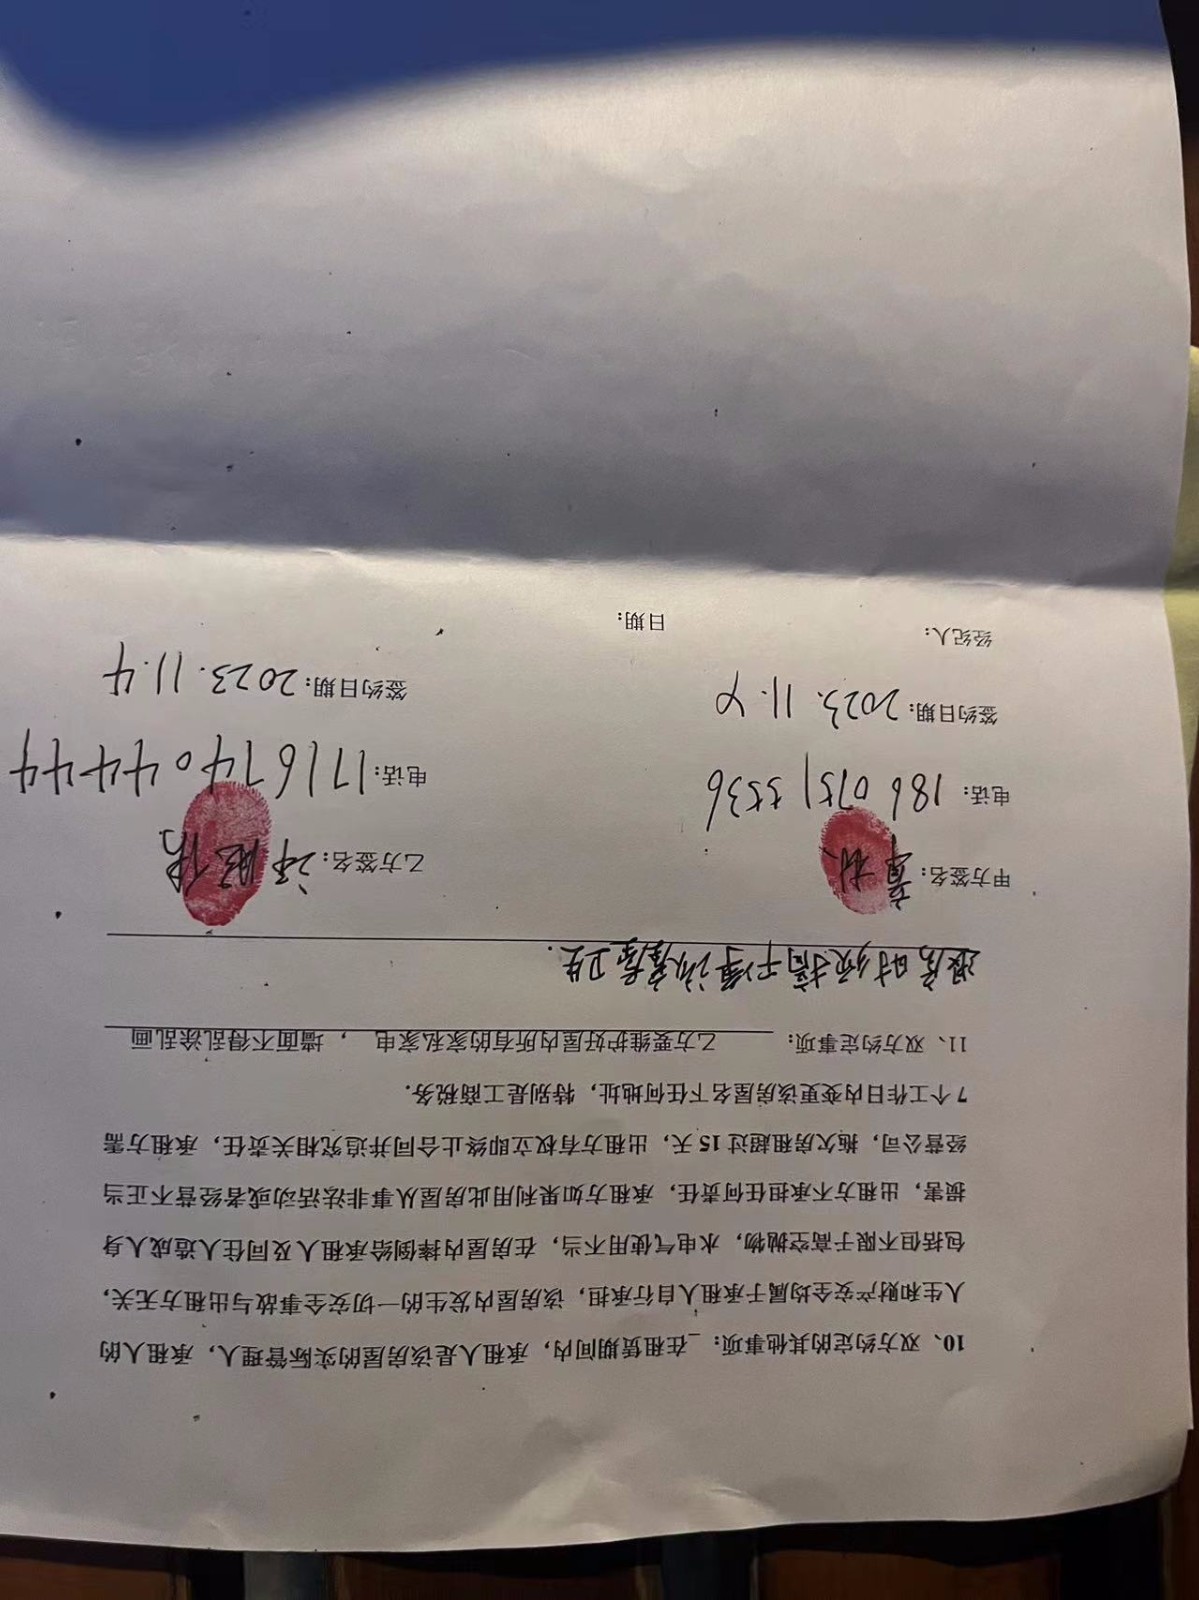 10、双方约定的其他事项：_在租赁期间内，承租人是该房屋的实际管理人，承租人的
人生和财产安全均属于承租人自行承担，该房屋内发生的一切安全事故与出租方无关，
包括但不限于高空抛物，水电气使用不当，在房屋内摔倒给承租人及同住人造成人身
损害，出租方不承担任何责任，承租方如果利用此房屋从事非法活动或者经营不正当
经营公司，拖欠房租超过 15 天，出租方有权立即终止合同并追究相关责任，承租方需
7 个工作日内变更该房屋名下任何地址，特别是工商税务.
11、双方约定事项： 乙方要维护好屋内所有的家私家电 ，墙面不得乱涂乱画
退房时须搞干净该房屋卫生.
甲方签名： 乙方签名：
电话：186 0751 5536 电话：17167404444
签约日期：2023.11.4 签约日期：2023.11.4
经纪人： 日期：